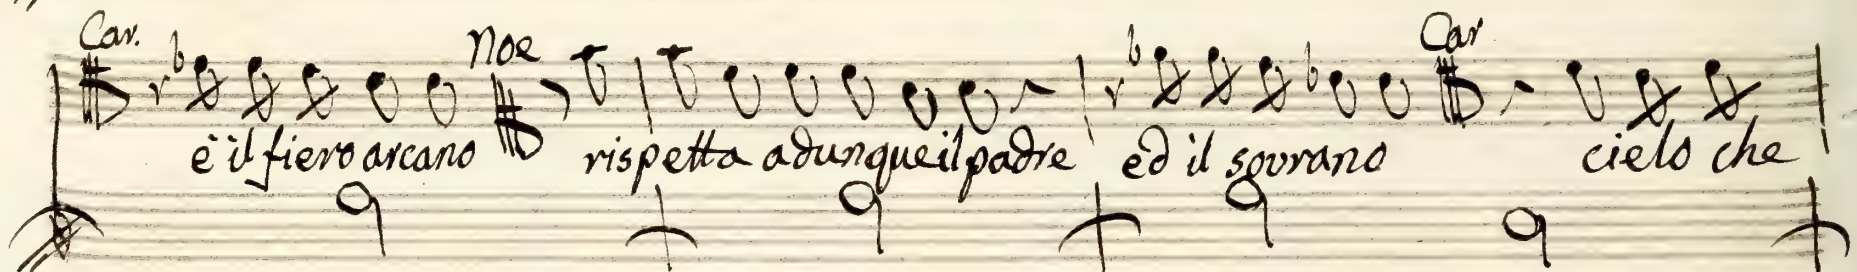 Car. Noe Car
è il fiero arcano rispetta adunque il padre ed il sovrano cielo che